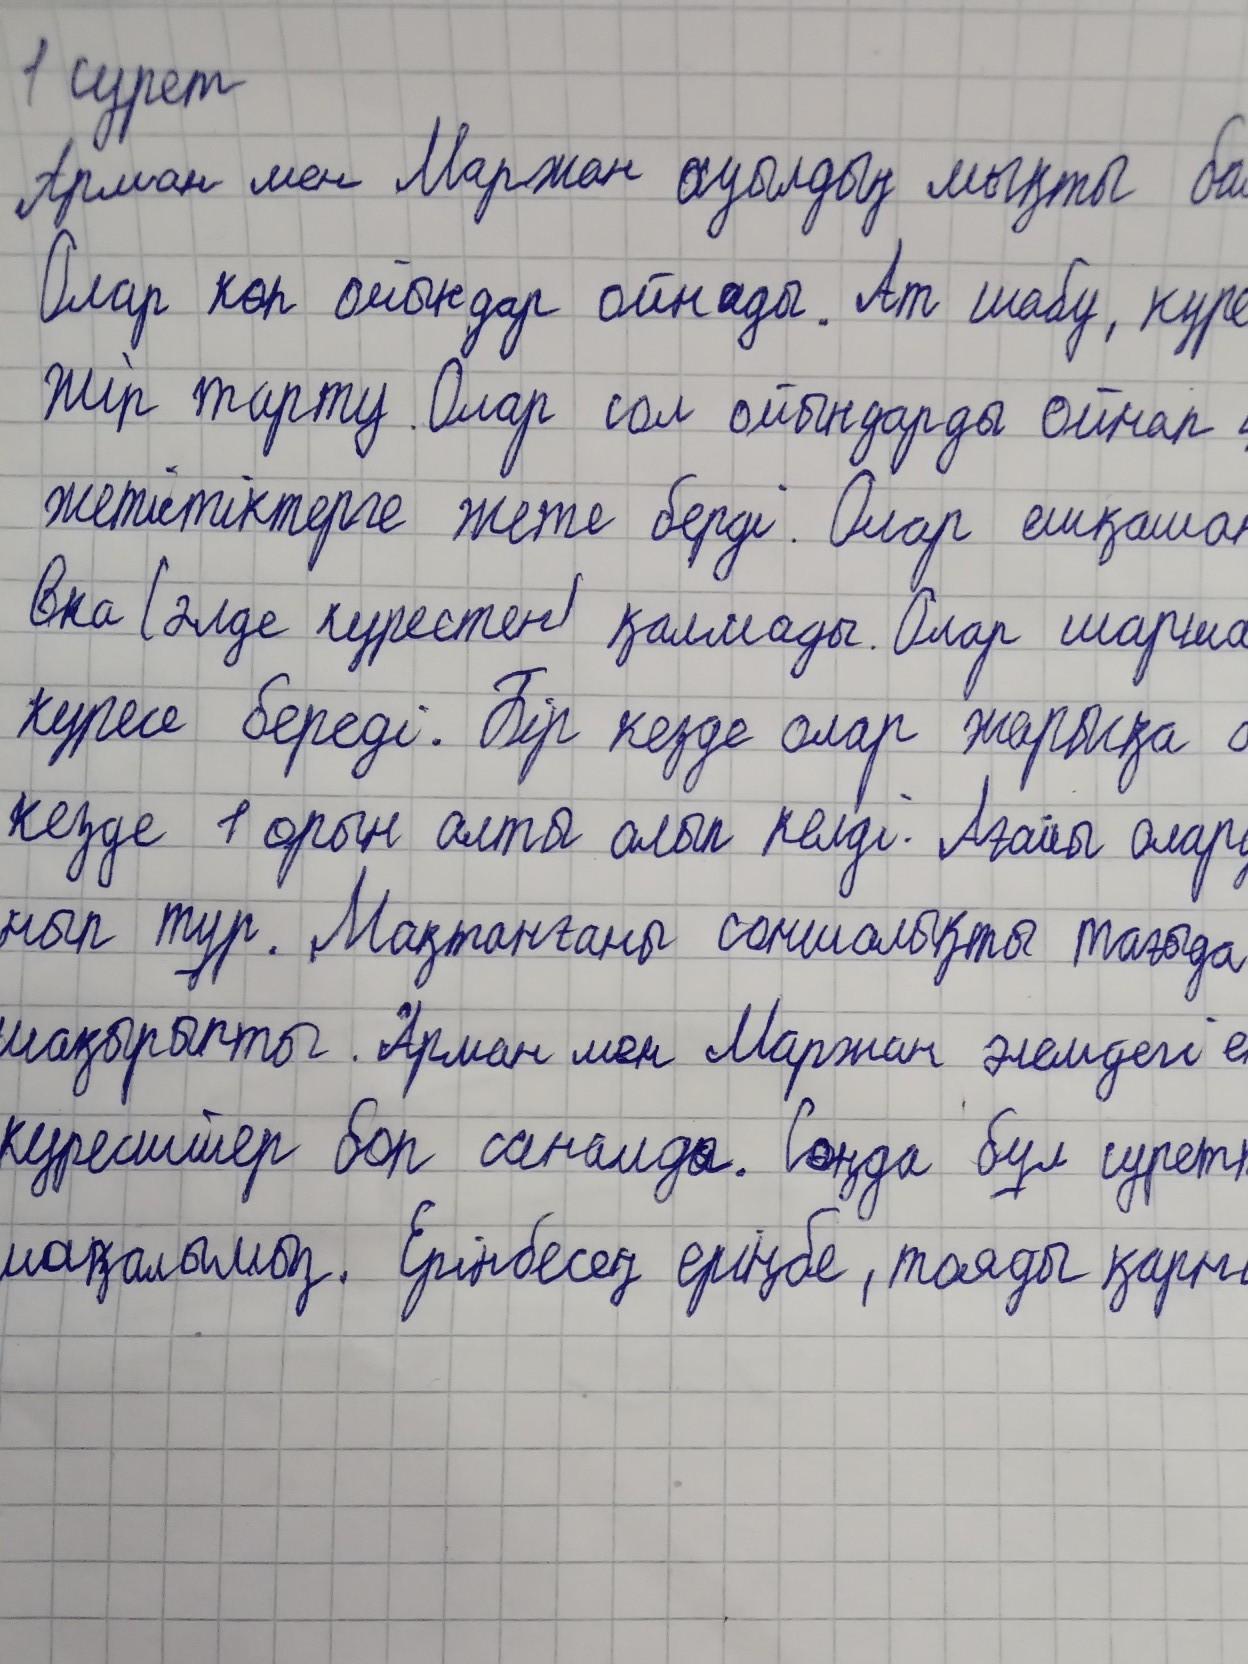 1 сурет
Арман мен Маржан ауылдың мықты ба
Олар көп ойындар ойнады. Ат шабу, күре
жіп тарту. Олар сол ойындарды ойнап
жетістіктерге жете берді. Олар ешқашан
вка (әлде күрестен) қалмады. Олар шарша
күресе береді. Бір кезде олар жарысқа
кезде 1 орын алты алып келді. Ағайы олард
нып тұр. Мақтанғаны соншалықты тағыда
шақырыпты. Арман мен Маржан әлемдегі ең
күресшітер боп саналды. Сонда бұл сурет
мақалымыз. Ерінбесең ерінбе, тояды қарны